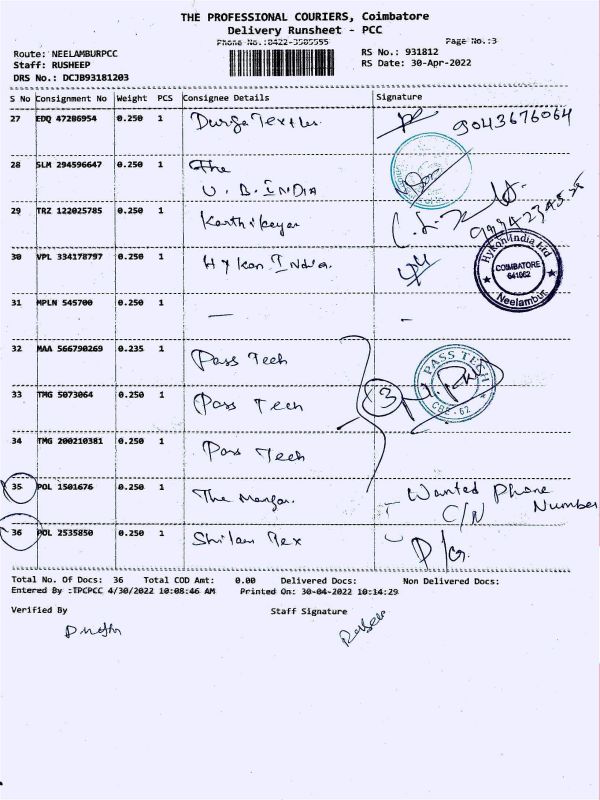 THE PROFESSIONAL COURIERS, Coimbatore
Delivery Runsheet - PCC
Phone No.:0422-3505555
Page No.:3
Route: NEELAMBURPCC
RS No.: 931812
Staff: RUSHEEP
RS Date: 30-Apr-2022
DRS No.: DCJB93181203
S No Consignment No Weight PCS Consignee Details Signature
27 EDQ 47286954 0.250 1 Durga 9043676064
28 SLM 294596647 0.250 1 The
U.B.INDIA
29 TRZ 122025785 0.250 1 Karthikeyan
30 VPL 334178797 0.250 1 Hykon India.
Hykon India Ltd
COIMBATORE
641062
Neelambur.
31 MPLN 545700 0.250 1 — –
32 MAA 566790269 0.235 1 Pass Tech
PASS TECH
CBE-62
33 TMG 5073064 0.250 1 Pass Tech 3
34 TMG 200210381 0.250 1 Pass Tech
35 POL 1501676 0.250 1 The Wanted Phone
C/N Number
36 POL 2535850 0.250 1 Tex
Total No. Of Docs: 36 Total COD Amt: 0.00 Delivered Docs: Non Delivered Docs:
Entered By :TPCPCC 4/30/2022 10:08:46 AM Printed On: 30-04-2022 10:14:29
Verified By Staff Signature